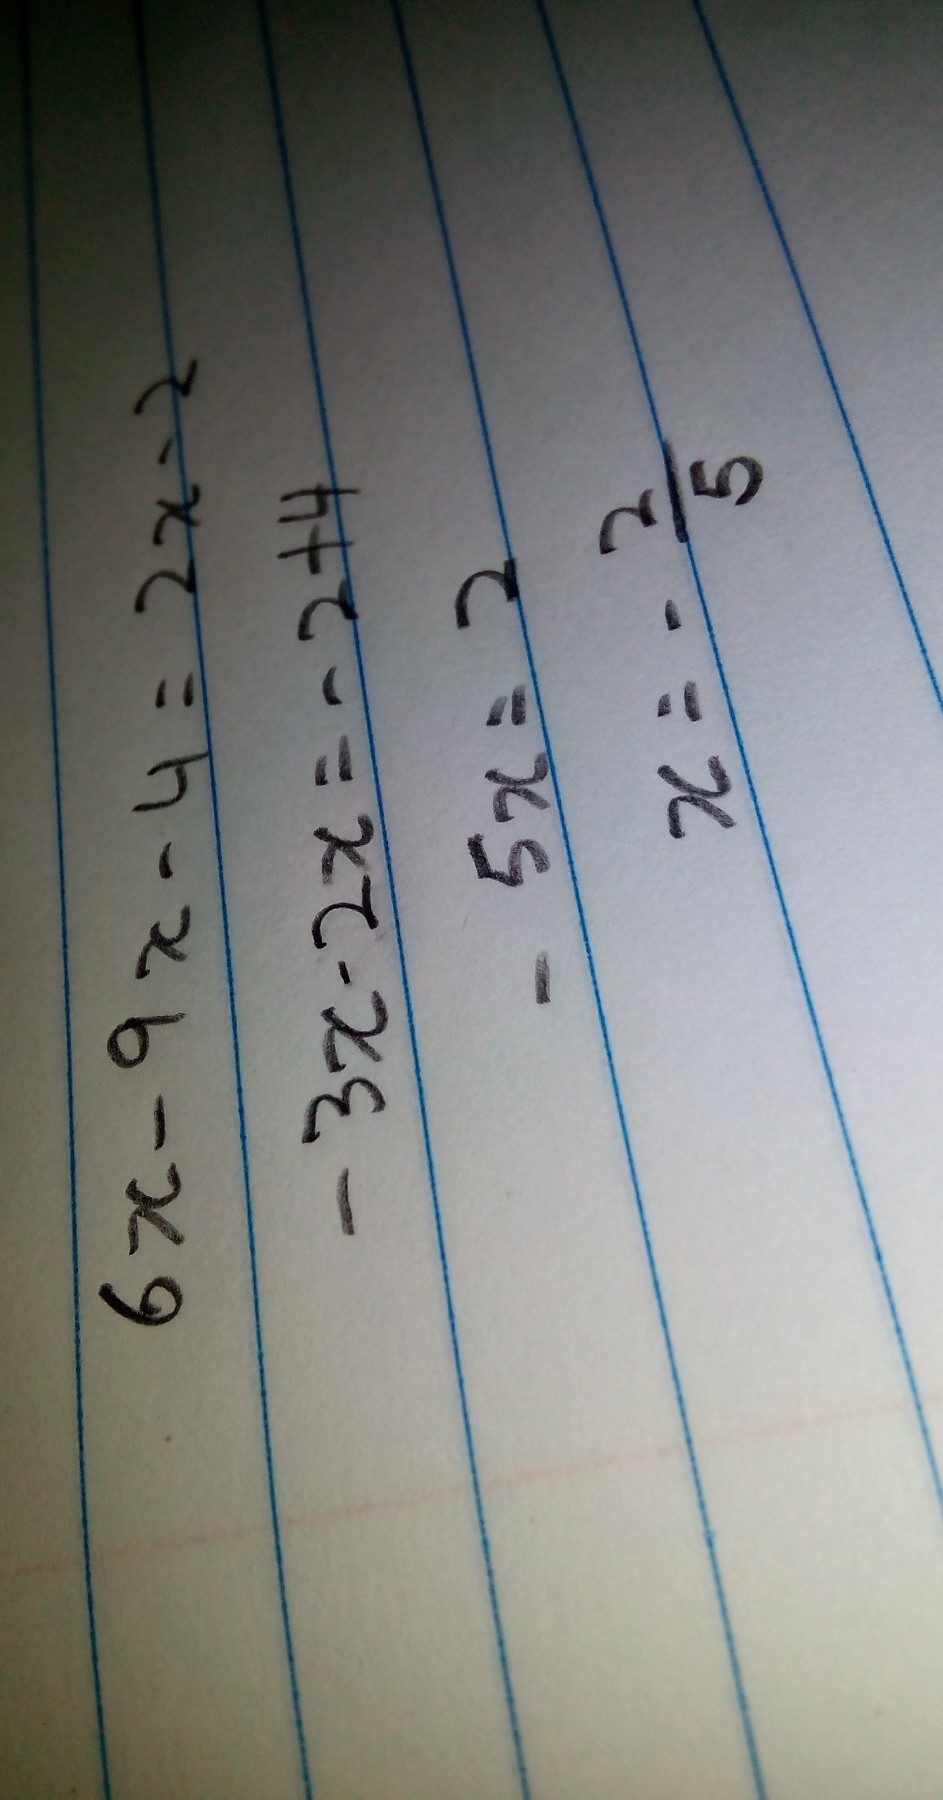 6x - 9x - 4 = 2x - 2
- 3x - 2x = - 2 + 4
- 5x = 2
x = - 2/5